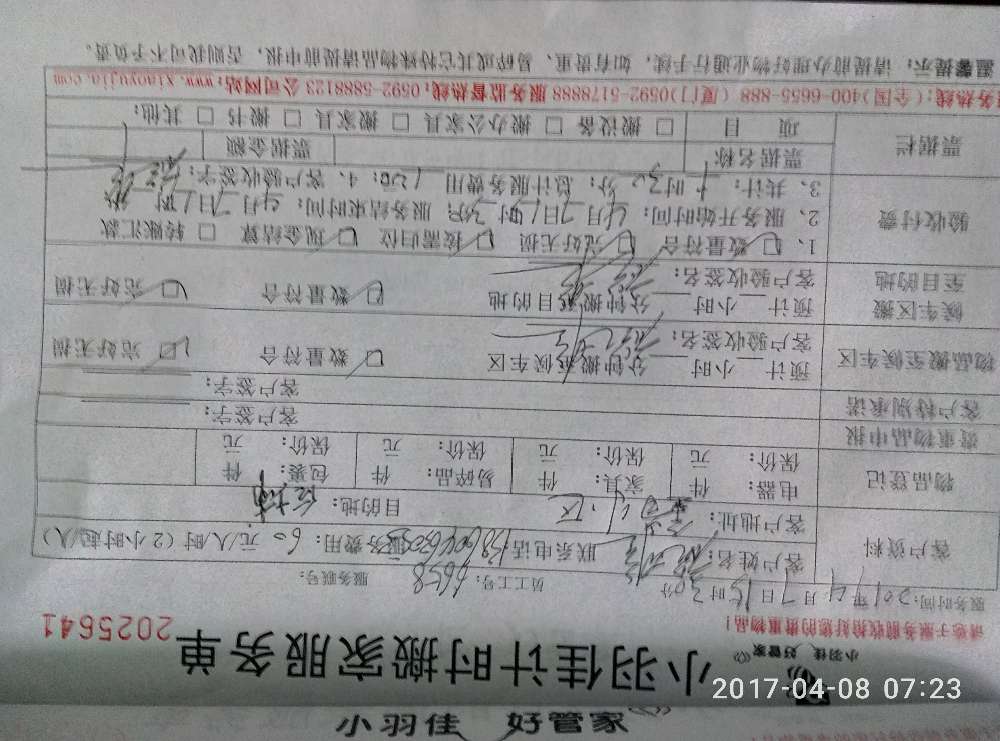 小羽佳 好管家
小羽佳 好管家
小羽佳计时搬家服务单 2025641
请您于服务前收拾好您的贵重物品!
服务时间: 2017年4月7日15时30分 员工工号: 6658 服务账号:
客户资料 客户姓名: 联系电话: 服务费用: 60 元/人/时 (2小时起/人)
客户地址: 小区 目的地:
物品登记 电器: 件 家具: 件 易碎品: 件 包裹: 件
保价: 元 保价: 元 保价: 元 保价: 元
贵重物品申报 客户签字:
客户特别承诺 客户签字:
物品搬至候车区 预计 小时 分钟搬至候车区 数量符合 完好无损
客户验收签名:
候车区搬至目的地 预计 小时 分钟搬移目的地 数量符合 完好无损
客户验收签名:
验收付费 1、 数量符合 完好无损 按需归位 现金结算 转账汇款
2、服务开始时间: 4月7日 时30分 服务结束时间: 4月7日 时 分
3、共计: 时30分; 总计服务费用 元; 4、客户验收签字:
票据栏 票据名称 票据金额
项 目 搬设备 搬办公家具 搬家具 搬书 其他:
服务热线: (全国)400-6655-888 (厦门)0592-5178888 服务监督热线: 0592-5888123 公司网站: www.xiaoyujia.com
温馨提示: 请提前办理好物业通行手续, 如有贵重、易碎或其它特殊物品请提前申报, 否则我司不予负责。
2017-04-08 07:23